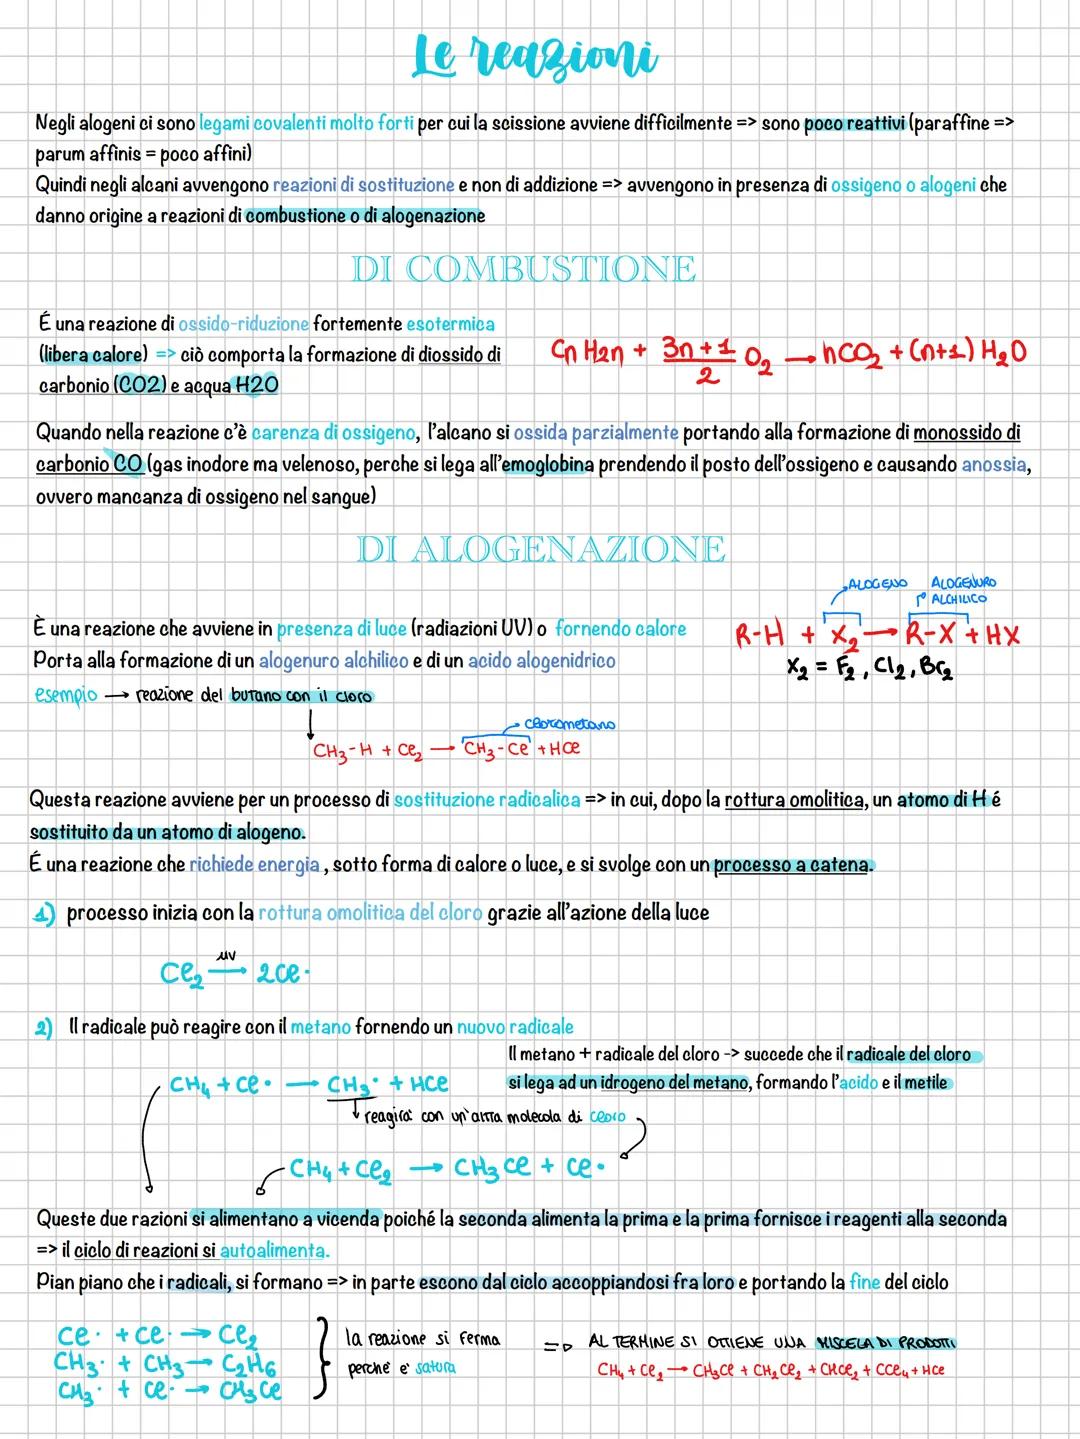 Le reazioni
Negli alogeni ci sono legami covalenti molto forti per cui la scissione avviene difficilmente => sono poco reattivi (paraffine =>
parum affinis = poco affini)
Quindi negli alcani avvengono reazioni di sostituzione e non di addizione => avvengono in presenza di ossigeno o alogeni che
danno origine a reazioni di combustione o di alogenazione
DI COMBUSTIONE
É una reazione di ossido-riduzione fortemente esotermica
(libera calore) => ciò comporta la formazione di diossido di
carbonio (CO2) e acqua H2O
Cn H2n + 3n+1/2 O₂ → nCO₂ + (n+1) H₂O
Quando nella reazione c'è carenza di ossigeno, l'alcano si ossida parzialmente portando alla formazione di monossido di
carbonio CO (gas inodore ma velenoso, perche si lega all'emoglobina prendendo il posto dell'ossigeno e causando anossia,
ovvero mancanza di ossigeno nel sangue)
DI ALOGENAZIONE
ALOGENO ALOGENURO
ALCHILICO
È una reazione che avviene in presenza di luce (radiazioni UV) o fornendo calore
R-H + X₂ → R-X + HX
Porta alla formazione di un alogenuro alchilico e di un acido alogenidrico
X₂ = F₂, Cl₂, Br₂
esempio → reazione del butano con il cloro
clorometano
CH₃-H + Cl₂ → CH₃-Cl + HCl
Questa reazione avviene per un processo di sostituzione radicalica => in cui, dopo la rottura omolitica, un atomo di H é
sostituito da un atomo di alogeno.
É una reazione che richiede energia, sotto forma di calore o luce, e si svolge con un processo a catena.
1) processo inizia con la rottura omolitica del cloro grazie all'azione della luce
uv
Cl₂ → 2Cl·
2) Il radicale può reagire con il metano fornendo un nuovo radicale
Il metano + radicale del cloro -> succede che il radicale del cloro
si lega ad un idrogeno del metano, formando l'acido e il metile
CH₄ + Cl· → CH₃· + HCl
reagirà con un'altra molecola di cloro
CH₄ + Cl₂ → CH₃Cl + Cl·
Queste due razioni si alimentano a vicenda poiché la seconda alimenta la prima e la prima fornisce i reagenti alla seconda
=> il ciclo di reazioni si autoalimenta.
Pian piano che i radicali, si formano => in parte escono dal ciclo accoppiandosi fra loro e portando la fine del ciclo
Cl· + Cl· → Cl₂
CH₃· + CH₃ → C₂H₆
CH₃· + Cl· → CH₃Cl
la reazione si ferma
perché e' satura
=> AL TERMINE SI OTTIENE UNA MISCELA DI PRODOTTI
CH₄ + Cl₂ → CH₃Cl + CH₂Cl₂ + CHCl₂ + CCl₄ + HCl